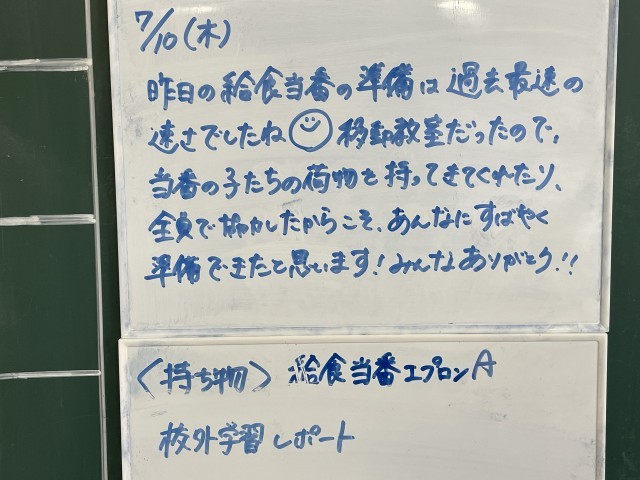 7/10(木)
昨日の給食当番の準備は過去最速の
速さでしたね 移動教室だったので、
当番の子たちの荷物を持ってきてくれたり、
全員で協力したからこそ、あんなにすばやく
準備できたと思います!みんなありがとう!!
〈持ち物〉 給食当番エプロンA
校外学習レポート